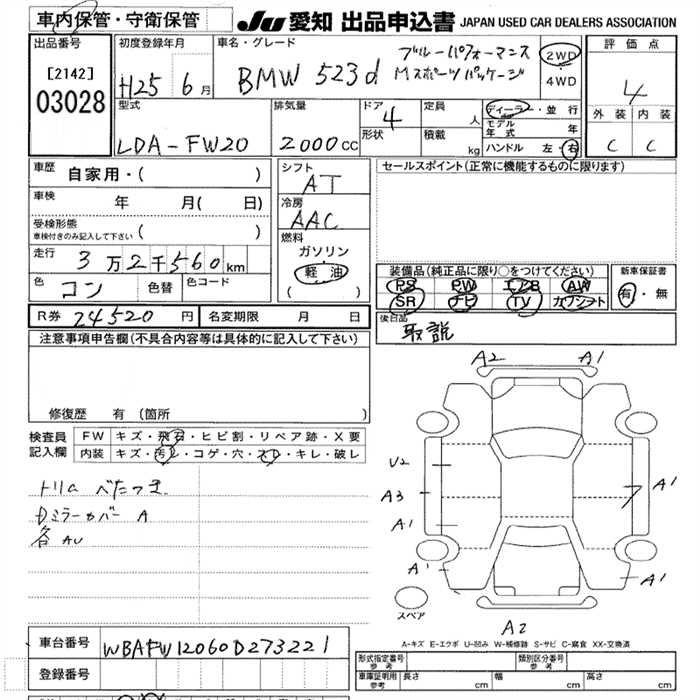 車内保管・守衛保管
JU 愛知 出品申込書 JAPAN USED CAR DEALERS ASSOCIATION
出品番号
[2142]
03028
初度登録年月
H25 6月
車名・グレード
BMW 523d
ブルーパフォーマンス
Mスポーツパッケージ
2WD
4WD
評価点
4
外装 内装
C C
型式
LDA-FW20
排気量
2000cc
ドア 4
形状
定員 人
積載 kg
ディーラー・並行
モデル年式 年
ハンドル 左・右
車歴 自家用・( )
車検 年 月( 日)
受検形態
車検付きのみ記入して下さい ( )
走行 3万2千560km
色 コン 色替 色コード
シフト
AT
冷房
AAC
燃料
ガソリン
軽油
( )
セールスポイント(正常に機能するものに限ります)
装備品(純正品に限り○をつけてください)
PS PW エアB AW
SR ナビ TV カワシート
新車保証書
有・無
R券 24520円 名変期限 月 日
後日品
取説
注意事項申告欄(不具合内容等は具体的に記入して下さい)
修復歴 有 (箇所 )
検査員
記入欄
FW キズ・飛石・ヒビ割・リペア跡・X要
内装 キズ・汚レ・コゲ・穴・スレ・キレ・破レ
トリム べたつき
Dミラーカバー A
各AU
A2 A1
U2
A3 A1
A1
A1 A1
スペア
A2
A-キズ E-エクボ U-凹み W-補修跡 S-サビ C-腐食 XX-交換済
車台番号 WBAFW12060D273221
登録番号
型式指定番号
参考
類別区分番号
参考
車庫証明用
参考
長さ cm 幅 cm 高さ cm